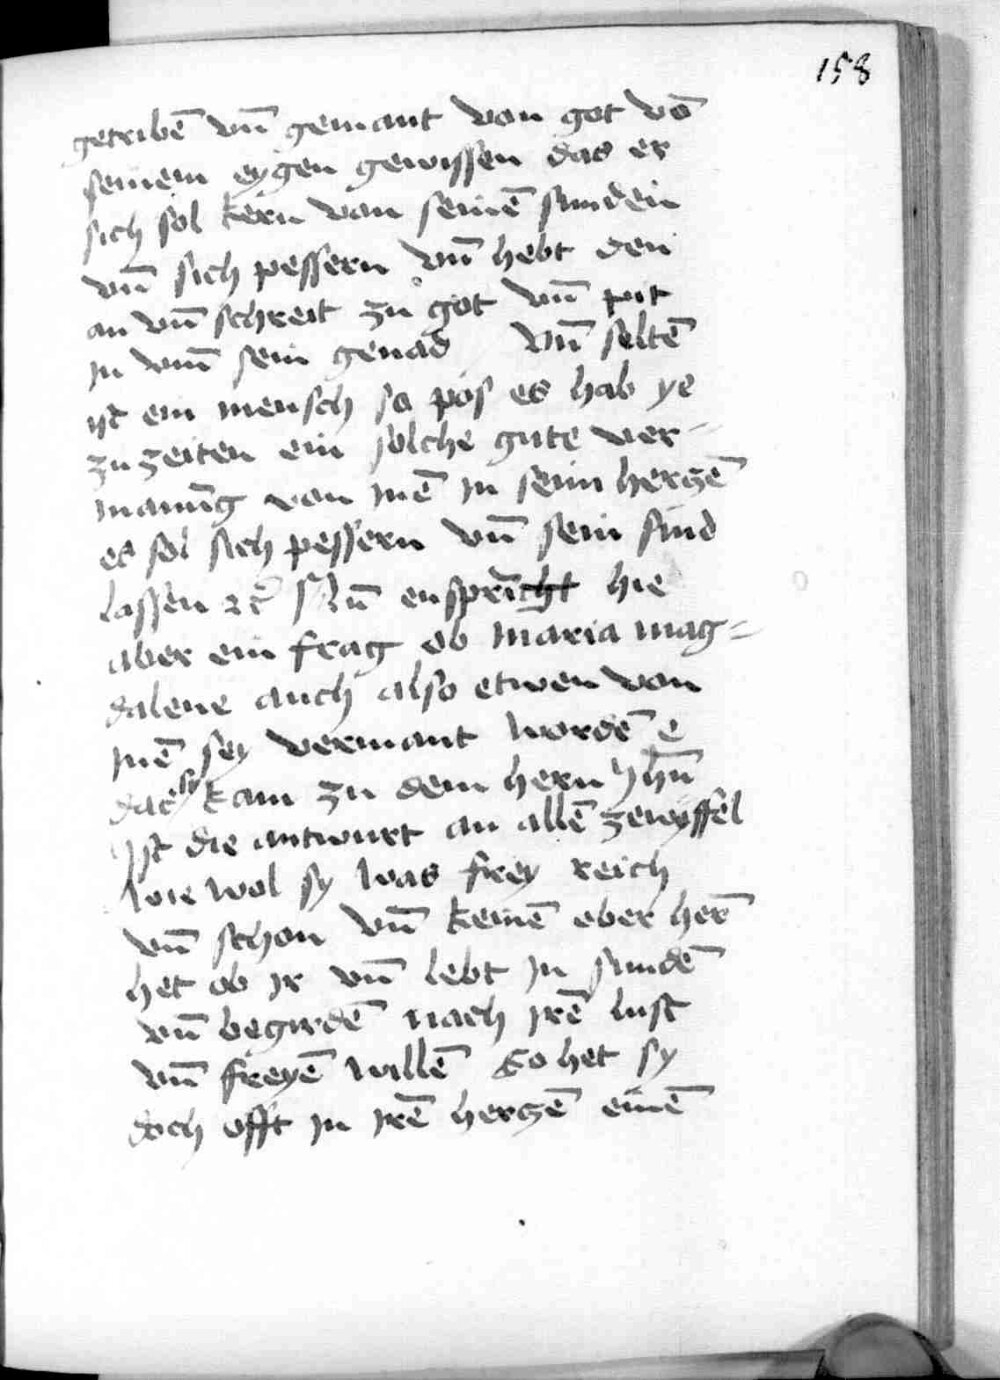 158
getribē vn̄ gemant von got vō
seinem eygen gewissen das er
sich sol kern von seinē sunden
vn̄ sich pessern vn̄ hebt den
an vn̄ schreit zu got vn̄ pit
in vm̄ sein genad vn̄ seltē
ist ein mensch so pos es hab ye
zu zeiten ein solche gute ver-
manūg von inē in seim herczē
es sol sich pessern vn̄ sein sund
lassen ꝛc̄ Nū enspricht hie
aber ein frag ob maria mag=
dalene auch also etwen von
inē sey vermant wordē e
das sy kam zu dem hern yhū
Ist die antwurt an allē zeweyffel
wie wol sy was frey reich
vn̄ schon vn̄ keinē eber herr̄
het ob ir vn̄ lebt in sundē
vn̄ begirdē nach irē lust
vn̄ freyē willē So het sy
doch offt in irē herczē einē